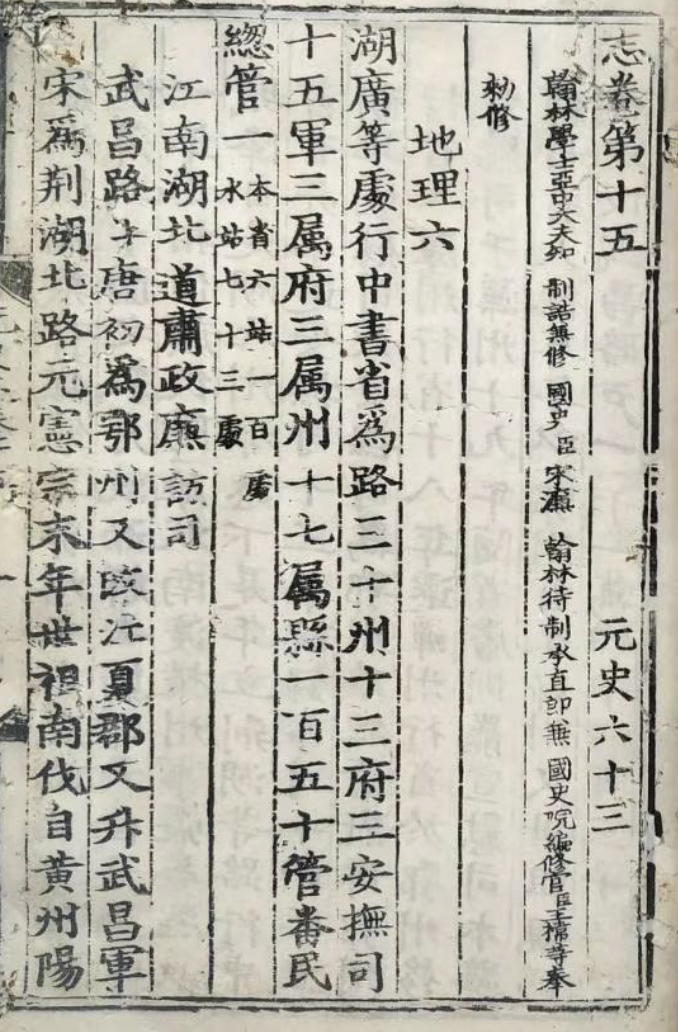 志卷第十五 元史六十三
翰林學士亞中大夫知 制誥兼修 國史 臣 宋濂 翰林待制承直郎兼 國史院編修官臣王禕等奉
勑修
地理六
湖廣等處行中書省為路三十州十三府三安撫司
十五軍三属府三属州十七属縣一百五十管番民
總管一 本省六站一百處
水站七十三處
江南湖北道肅政廉訪司
武昌路 上 唐初為鄂州又改江夏郡又升武昌軍
宋為荆湖北路元憲宗末年世祖南伐自黄州陽